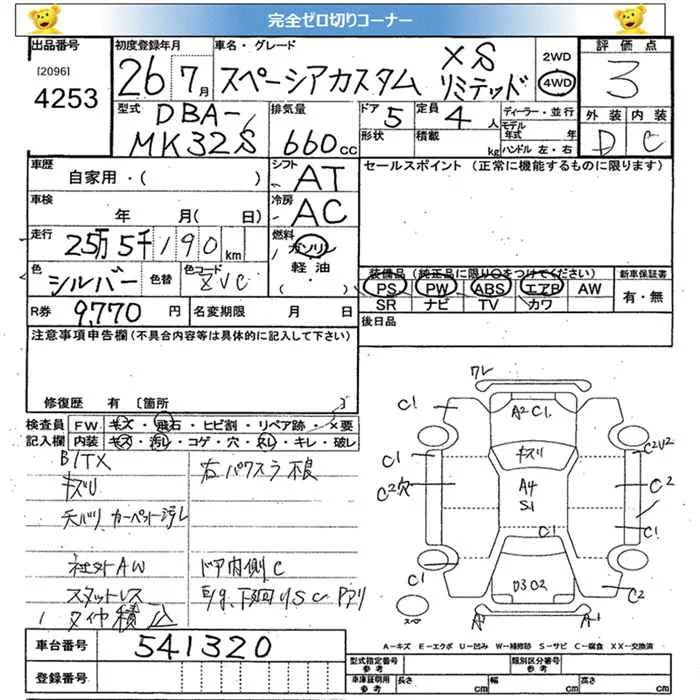 完全ゼロ切りコーナー
出品番号 初度登録年月 車名・グレード 2WD 評価点
[2096] 26年7月 スペーシアカスタム XS リミテッド 4WD 3
4253
型式 排気量 ドア 定員 ディーラー・並行 外装 内装
DBA- 5 4人 モデル年式 年 D C
MK32S 660cc 形状 積載 kg ハンドル 左・右
車歴 シフト セールスポイント(正常に機能するものに限ります)
自家用・( ) AT
車検 冷房
年 月(日) AC
走行 25万5千190km 燃料 ガソリン
軽油
(・)
色 シルバー 色替 色コード 装備品(純正品に限り○をつけてください) 新車保証書
PS PW ABS エアB AW 有・無
SR ナビ TV カワ
R券 9,770円 名変期限 月 日 後日品
注意事項申告欄(不具合内容等は具体的に記入して下さい)
修復歴 有 〔箇所 〕
検査員 FW キズ・飛石・ヒビ割・リペア跡・×要
記入欄 内装 キズ・汚レ・コゲ・穴・スレ・キレ・破レ
キズリ 右パワスラ不良
カーペット汚レ
社外AW ドア内側C
スタットレス
タイヤ積込
ワレ
C1 A2 C1 C1
キズリ
C1 C2U2
C2穴 A4 C2
S1
C1 C1
C1
D3 O2 C2
スペア A1 A1
車台番号 541320
A-キズ E-エクボ U-凹み W-補修跡 S-サビ C-腐食 XX-交換済
登録番号 型式指定番号 参考 類別区分番号 参考
車庫証明用 参考 長さ cm 幅 cm 高さ cm